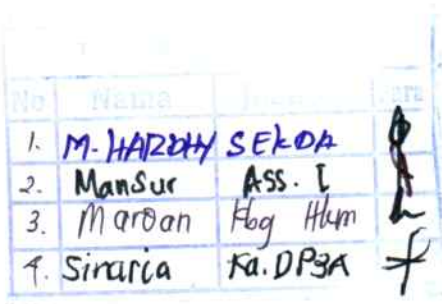 No Nama
1. M. HARDHY SEKDA
2. Mansur ASS. I
3. Maroan Kbg Hkm
4. Siraria Ka. DP3A